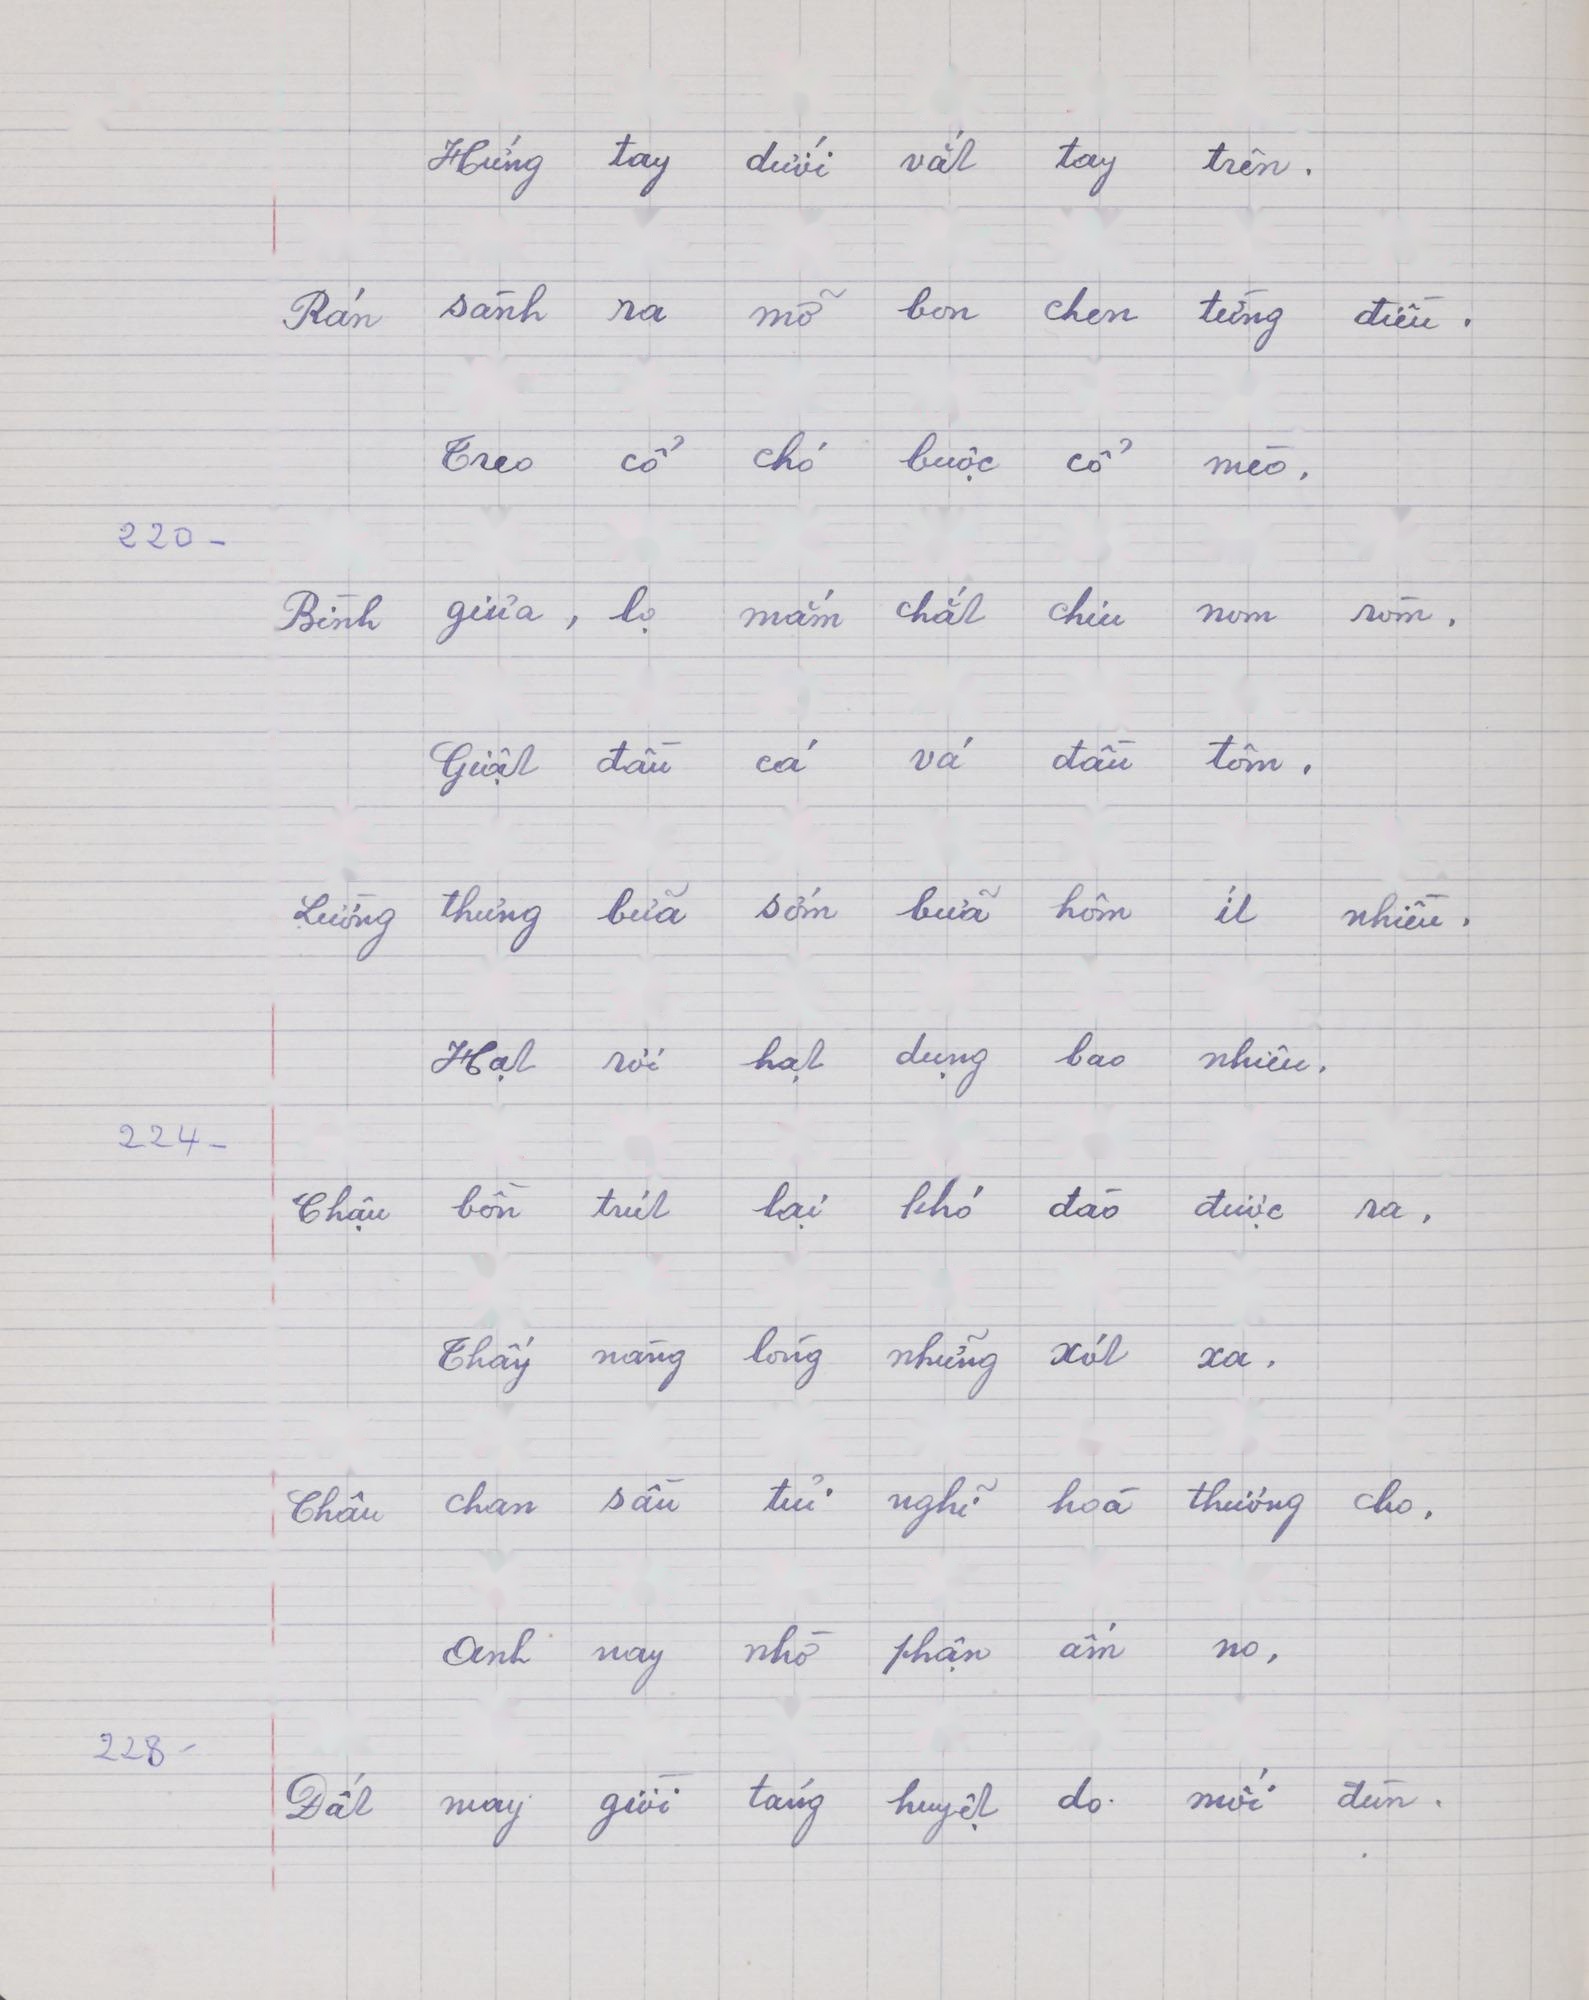 Hứng tay dưới vắt tay trên.
Rán sành ra mỡ bon chen từng điều.
Treo cổ chó buộc cổ mèo,
220-
Bình giưa, lọ mắm chắt chiu nom ròm,
Giật đầu cá vá đầu tôm,
Lường thưng bữa sớm bữa hôm ít nhiều.
Hạt rơi hạt dụng bao nhiêu,
224-
Chậu bồn trút lại khó đào được ra,
Thấy nàng lòng những xót xa,
Châu chan sầu tủi nghĩ hoà thương cho,
Anh nay nhờ phận ấm no,
228-
Đất may giời táng huyệt do mối đùn.